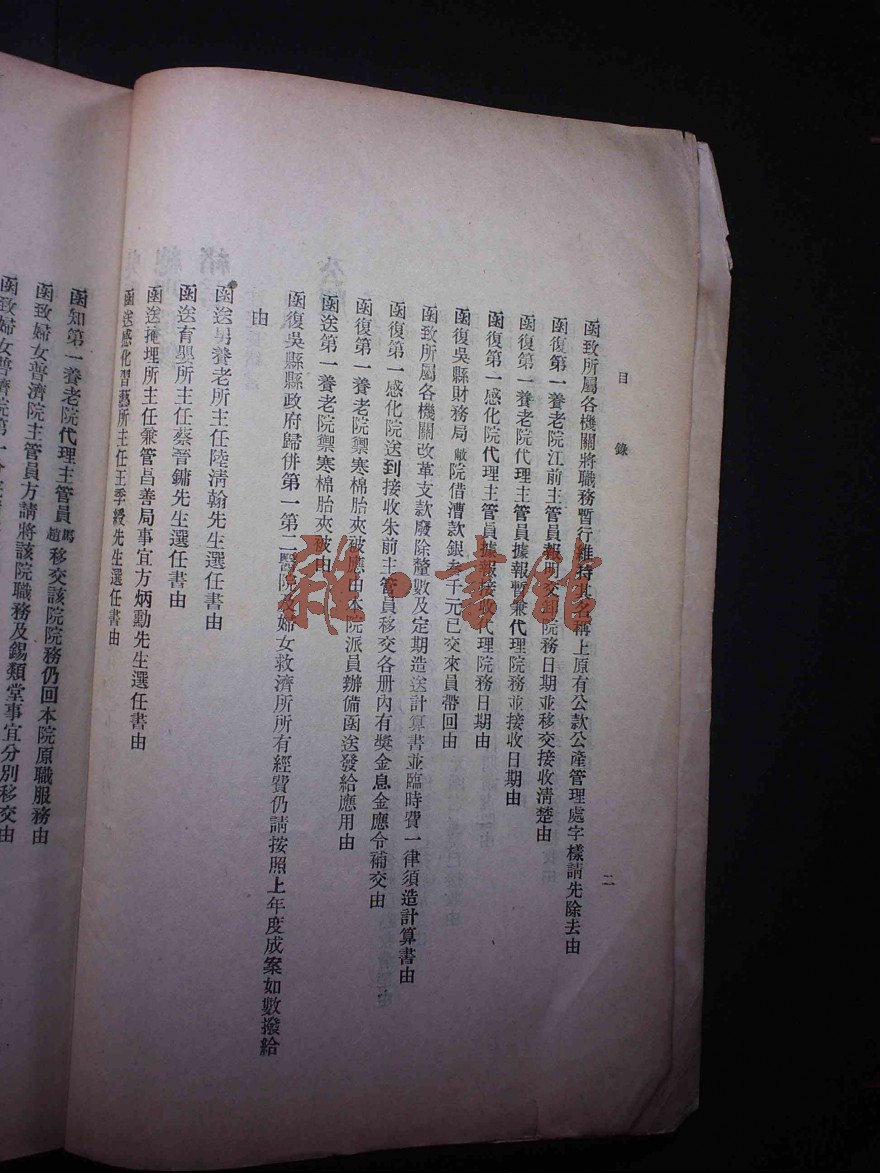 目錄
二
函致所屬各機關將職務暫行維持其名稱上原有公款公產管理處字樣請先除去由
函復第一養老院江前主管員報明交卸院務日期並移交接收清楚由
函復第一養老院代理主管員據報暫兼代理院務並接收日期由
函復第一感化院代理主管員據報接收代理院務日期由
函復吳縣財務局敝院借漕款銀叁千元已交來員帶回由
函致所屬各機關改革支款廢除釐數及定期造送計算書並臨時費一律須造計算書由
函復第一感化院送到接收朱前主管員移交各册內有獎金息金應令補交由
函復第一養老院禦寒棉胎夾被應由本院派員辦備函送發給應用由
函送第一養老院禦寒棉胎夾被由
函復吳縣縣政府歸併第一第二醫院及婦女救濟所所有經費仍請按照上年度成案如數撥給
由
函送男養老所主任陸淸翰先生選任書由
函送育嬰所主任蔡晉鏞先生選任書由
函送掩埋所主任兼管昌善局事宜方炳勳先生選任書由
函送感化習藝所主任王季緩先生選任書由
函知第一養老院代理主管員馬趙移交該院院務仍回本院原職服務由
函致婦女普濟院主管員方請將該院職務及錫類堂事宜分別移交由
函致婦女普濟院第一
雜·書館